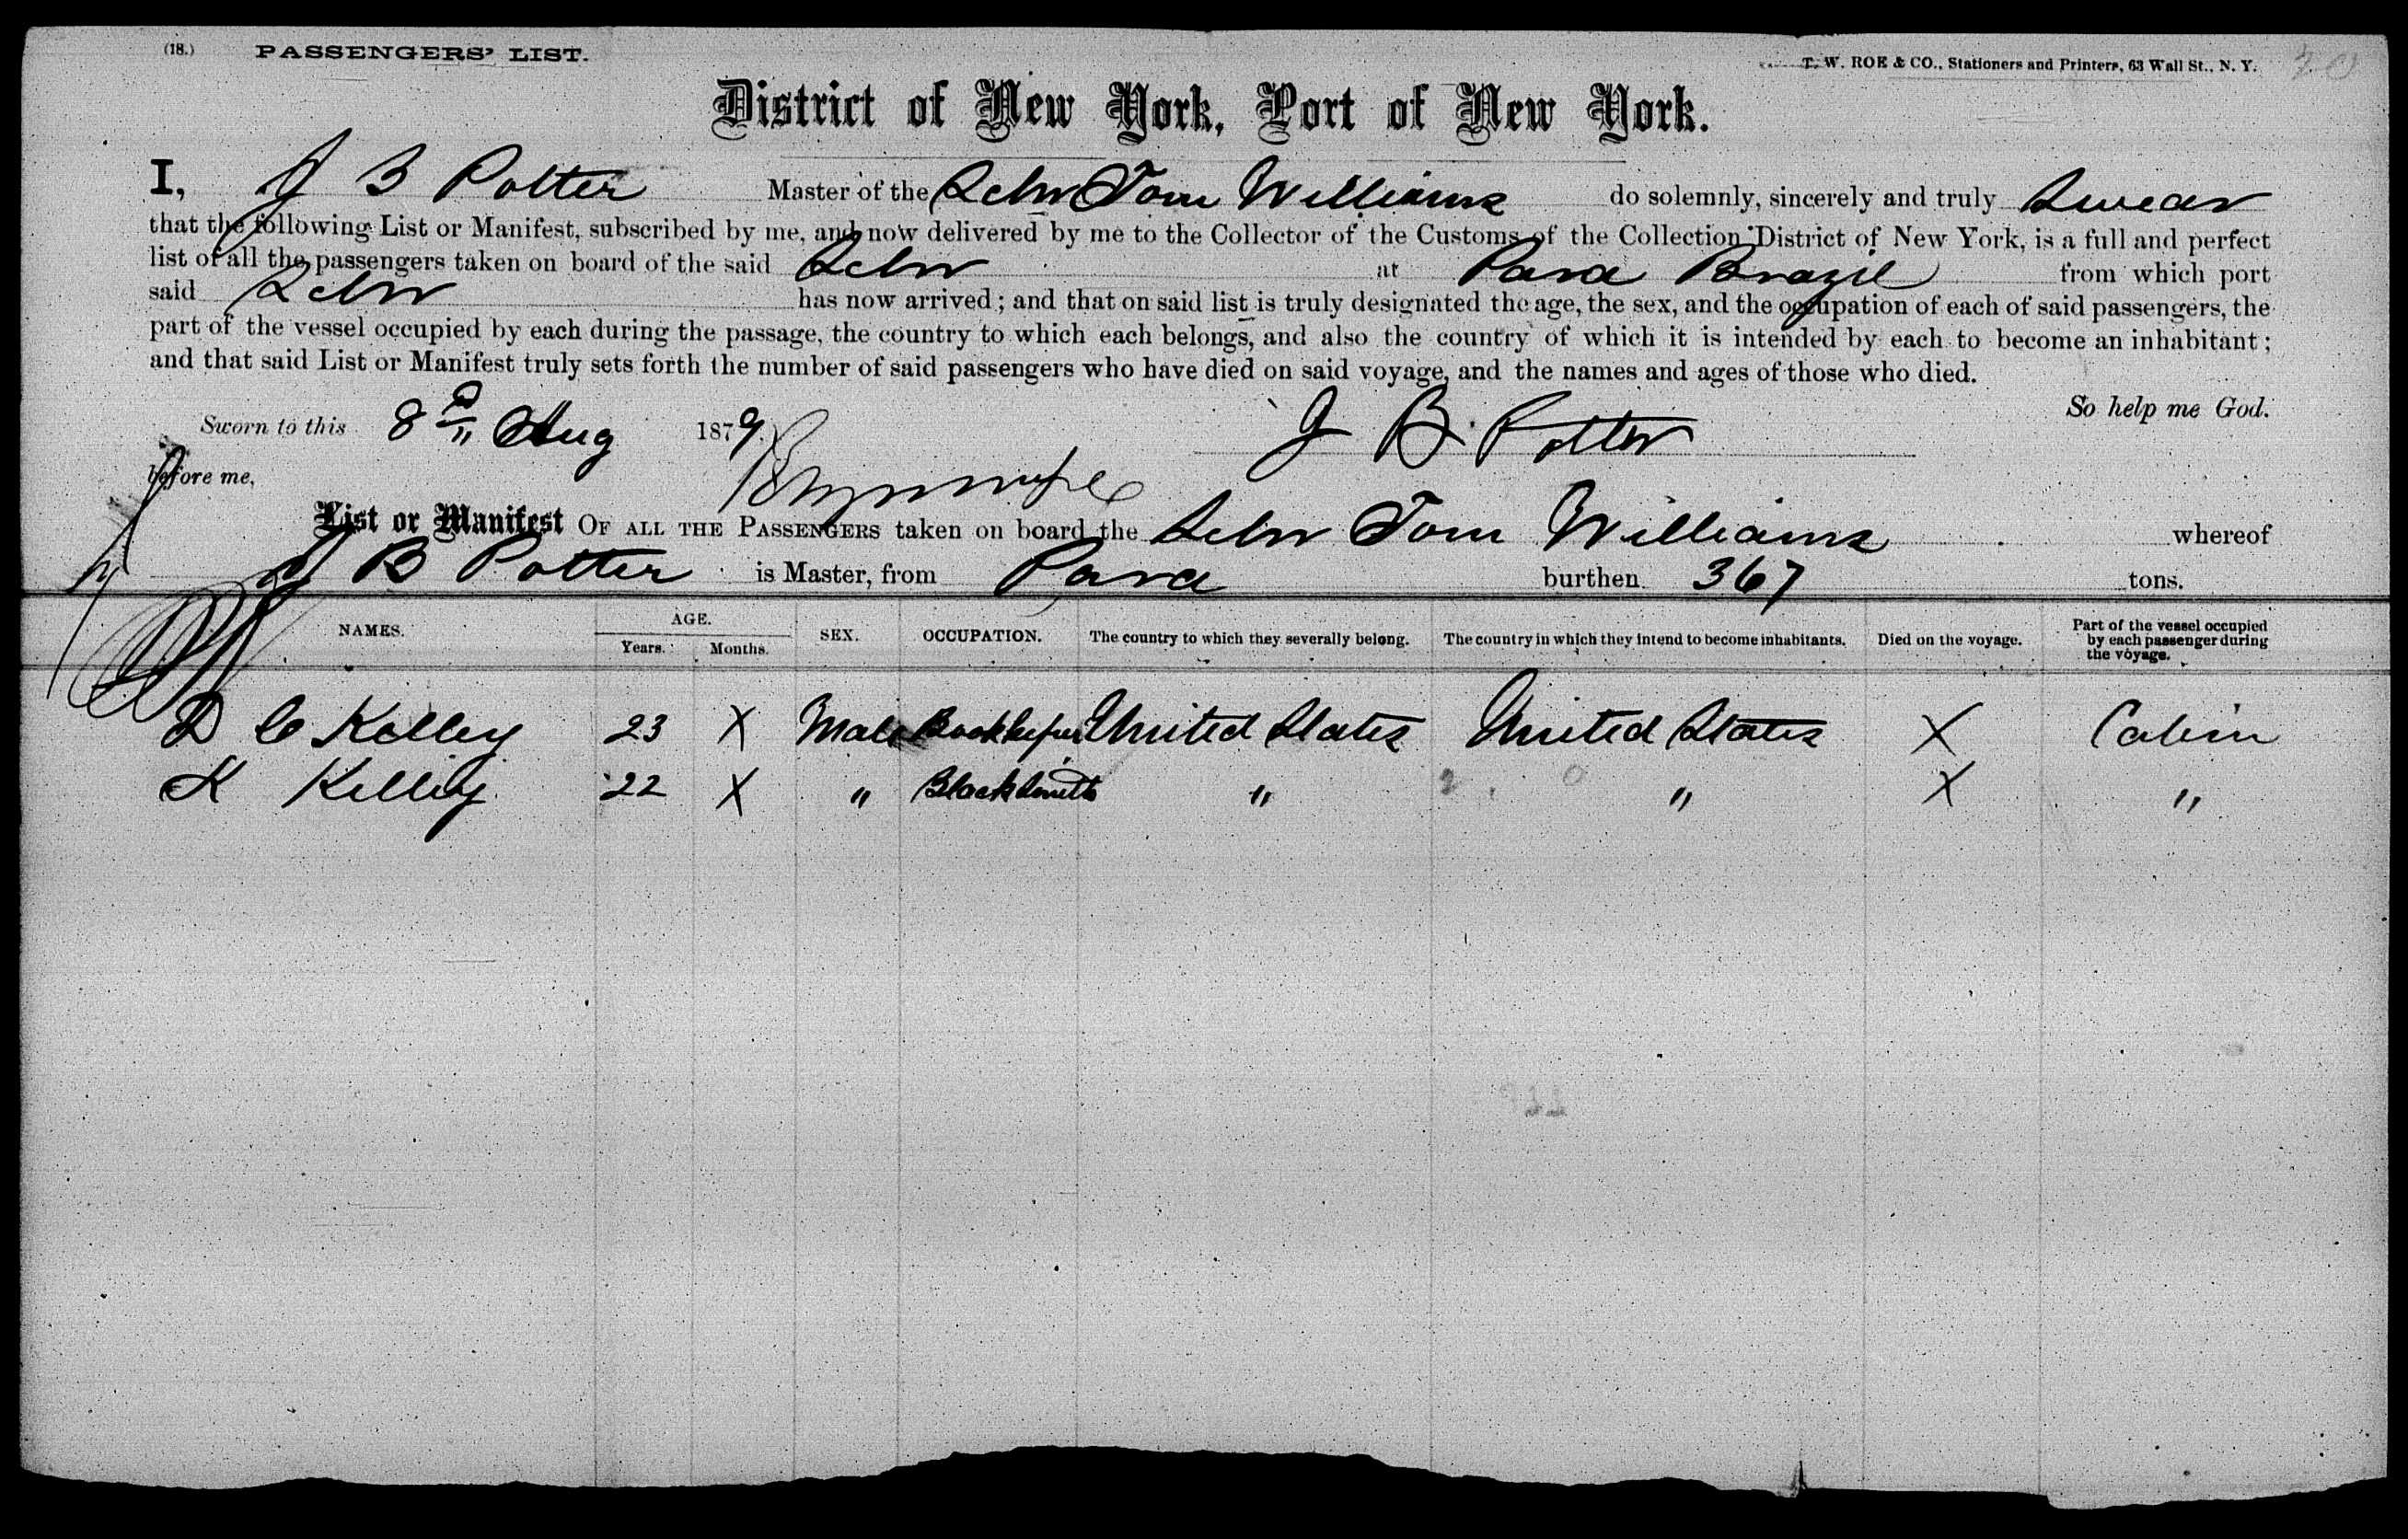 (18.) PASSENGERS' LIST. T. W. ROE & CO., Stationers and Printers, 63 Wall St., N. Y.
District of New York, Port of New York.
I, J B Potter Master of the Schr Tom Williams do solemnly, sincerely and truly Swear
that the following List or Manifest, subscribed by me, and now delivered by me to the Collector of the Customs of the Collection District of New York, is a full and perfect
list of all the passengers taken on board of the said Schr at Para Brazil from which port
said Schr has now arrived; and that on said list is truly designated the age, the sex, and the occupation of each of said passengers, the
part of the vessel occupied by each during the passage, the country to which each belongs, and also the country of which it is intended by each to become an inhabitant;
and that said List or Manifest truly sets forth the number of said passengers who have died on said voyage, and the names and ages of those who died.
So help me God.
Sworn to this 8 Aug 1879. J B. Potter
before me,
List or Manifest OF ALL THE PASSENGERS taken on board the Schr Tom Williams whereof
J B Potter is Master, from Para burthen 367 tons.
NAMES. AGE. Years. Months. SEX. OCCUPATION. The country to which they severally belong. The country in which they intend to become inhabitants. Died on the voyage. Part of the vessel occupied by each passenger during the voyage.
D C Kelley 23 X Male Bookkeeper United States United States X Cabin
K Kelley 22 X " Blacksmith " " X "